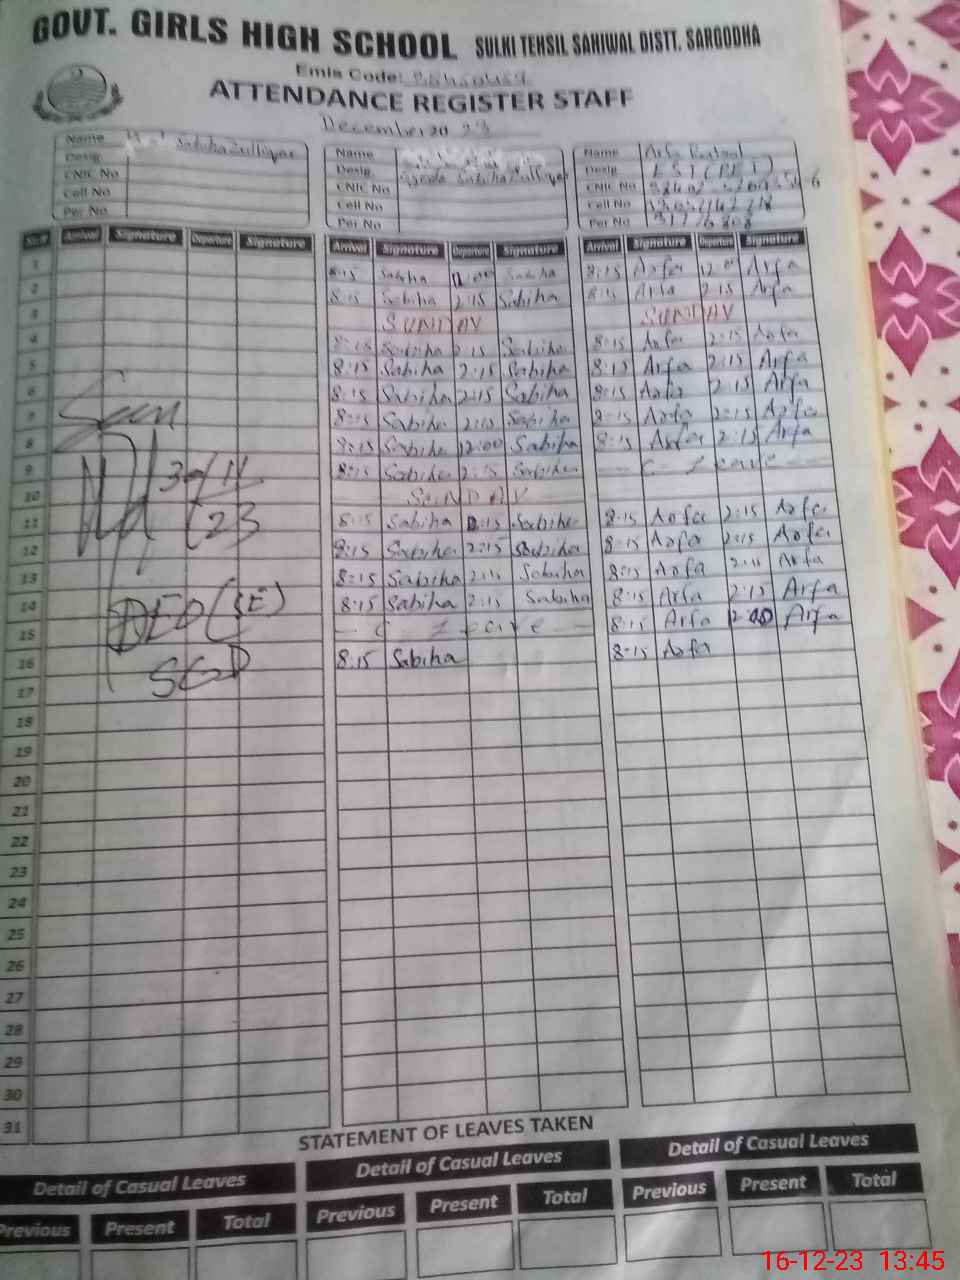 GOVT. GIRLS HIGH SCHOOL SULKI TEHSIL SAHIWAL DISTT. SARGODHA
Emis Code:
ATTENDANCE REGISTER STAFF
December 2023
Name Sabiha Zulfiqar
Desig
CNIC No
Cell No
Per No
Name
Desig Syeda Sabiha Zulfiqar
CNIC No
Cell No
Per No
Name Arfa
Desig EST (PET)
CNIC No
Cell No
Per No
Sr.# Arrival Signature Departure Signature Arrival Signature Departure Signature Arrival Signature Departure Signature
1 8:15 Sabiha 12:00 Sabiha 8:15 Arfa 12:00 Arfa
2 8:15 Sabiha 2:15 Sabiha 8:15 Arfa 2:15 Arfa
3 SUNDAY SUNDAY
4 8:15 Sabiha 2:15 Sabiha 8:15 Arfa 2:15 Arfa
5 8:15 Sabiha 2:15 Sabiha 8:15 Arfa 2:15 Arfa
6 8:15 Sabiha 2:15 Sabiha 8:15 Arfa 2:15 Arfa
7 8:15 Sabiha 2:15 Sabiha 8:15 Arfa 2:15 Arfa
8 8:15 Sabiha 12:00 Sabiha 8:15 Arfa 2:15 Arfa
9 8:15 Sabiha 2:15 Sabiha C - Leave
10 SUNDAY
11 8:15 Sabiha 2:15 Sabiha 8:15 Arfa 2:15 Arfa
12 8:15 Sabiha 2:15 Sabiha 8:15 Arfa 2:15 Arfa
13 8:15 Sabiha 2:15 Sabiha 8:15 Arfa 2:15 Arfa
14 8:15 Sabiha 2:15 Sabiha 8:15 Arfa 2:15 Arfa
15 - C - Leave - 8:15 Arfa 12:00 Arfa
16 8:15 Sabiha 8:15 Arfa
17
18
19
20
21
22
23
24
25
26
27
28
29
30
31
Seen
30/11
23
DEO (SE)
SGD
STATEMENT OF LEAVES TAKEN
Detail of Casual Leaves Detail of Casual Leaves Detail of Casual Leaves
Previous Present Total Previous Present Total Previous Present Total
16-12-23 13:45